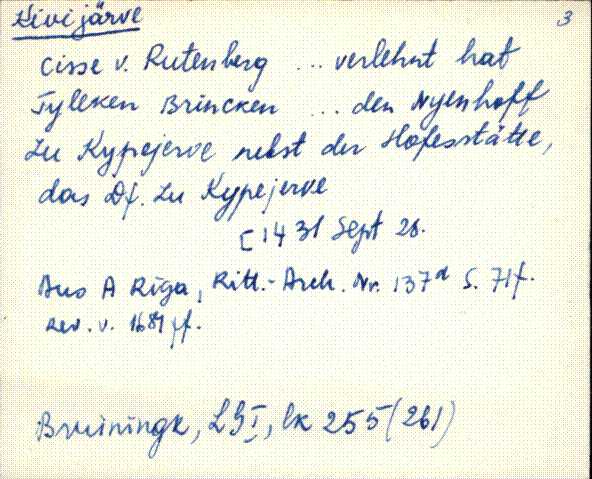 Kivijärve 3
Cisse v. Rutenberg ... verlehnt hat
Tyleken Brincken ... den Nyenhoff
zu Kypejerve nebst der Hofesstätte,
das Df. zu Kypejerve
[1431 Sept 26.
Aus A Riga, Ritt.-Arch. Nr. 137d S. 71f.
Rev. v. 1681 ff.
Bruiningk, LGI, lk 255 (261)